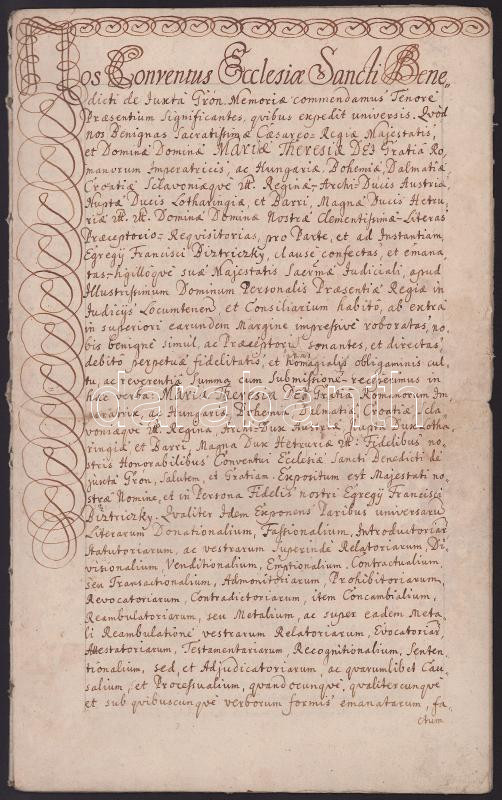 Nos Conventus Ecclesiæ Sancti Bene„
dicti de Juxta Grön. Memoriæ commendamus Tenore
Præsentium Significantes, quibus expedit universis. Qvod
nos Benignas Sacratissimæ Cæsareo-Regiæ Majestatis,
et Dominæ Dominæ Mariæ Theresiæ Dei Gratiâ Ro„
manorum Imperatricis, ac Hungariæ, Bohemiæ, Dalmatiæ
Croatiæ Sclavoniæqve &c. Reginæ-Archi-Ducis Austriæ,
Nuptæ Ducis Lotharingiæ, et Barri, Magnæ Ducis Hetru„
riæ &c. &c. Dominæ Dominæ Nostræ Clementissimæ-Literas
Præceptorio-Reqvisitorias, pro Parte, et ad Instantiam,
Egregÿ Francisci Biztriczky, clause confectas, et emana„
tas-Sigilloqve suæ Majestatis Sacrimæ Judiciali, apud
Illustrissimum Dominum Personalis Præsentiæ Regiæ in
Judicÿs Locumtenen, et Consiliarium habito, ab extra
in superiori earundem Margine impressivè roboratas, no„
bis benignè simul, ac Præceptoriè sonantes, et directas,
debito perpetuæ fidelitatis, et homagialis obligaminis cul„
tu, ac reverentiâ Summa cum Submissione-recepimus in
hæc verba: Maria Theresia Dei Gratiâ Romanorum Im„
peratrix, ac Hungariæ, Bohemiæ, Dalmatiæ, Croatiæ Scla„
voniæqve &c. Regina Archi-Dux Austriæ, Nupta Dux Lotha„
ringiæ et Barri Magna Dux Hetruriæ &c: Fidelibus no„
stris Honorabilibus Conventui Ecclesiæ Sancti Benedicti de
juxta Grön, Salutem, et Gratiam. Expositum est Majestati no„
stræ Nomine, et in Persona Fidelis nostri Egregÿ Francisci
Biztriczky. Qvaliter Idem Exponens Paribus universarū
Literarum Donationalium, Fassionalium, Introductoriar
Statutoriarum, ac vestrarum Superinde Relatoriarum, Di„
visionalium, Venditionalium, Emptionalium, Contractualium,
seu Transactionalium, Admonitoriarum, Prohibitoriarum,
Revocatoriarum, Contradictoriarum, item Concambialium,
Reambulatoriarum, seu Metalium, ac super eadem Meta„
li Reambulatione vestrarum Relatoriarum, Evocatoriar,
Attestatoriarum, Testamentariarum, Recognitionalium, Senten„
tionalium, sed, et Adjudicatoriarum, ac qvarumlibet Cau„
salium, et Processualium, qvandocunqve, qvalitercunqve
et sub qvibuscunqve verborum formis emanatarum, fa„
ctum
darabanth